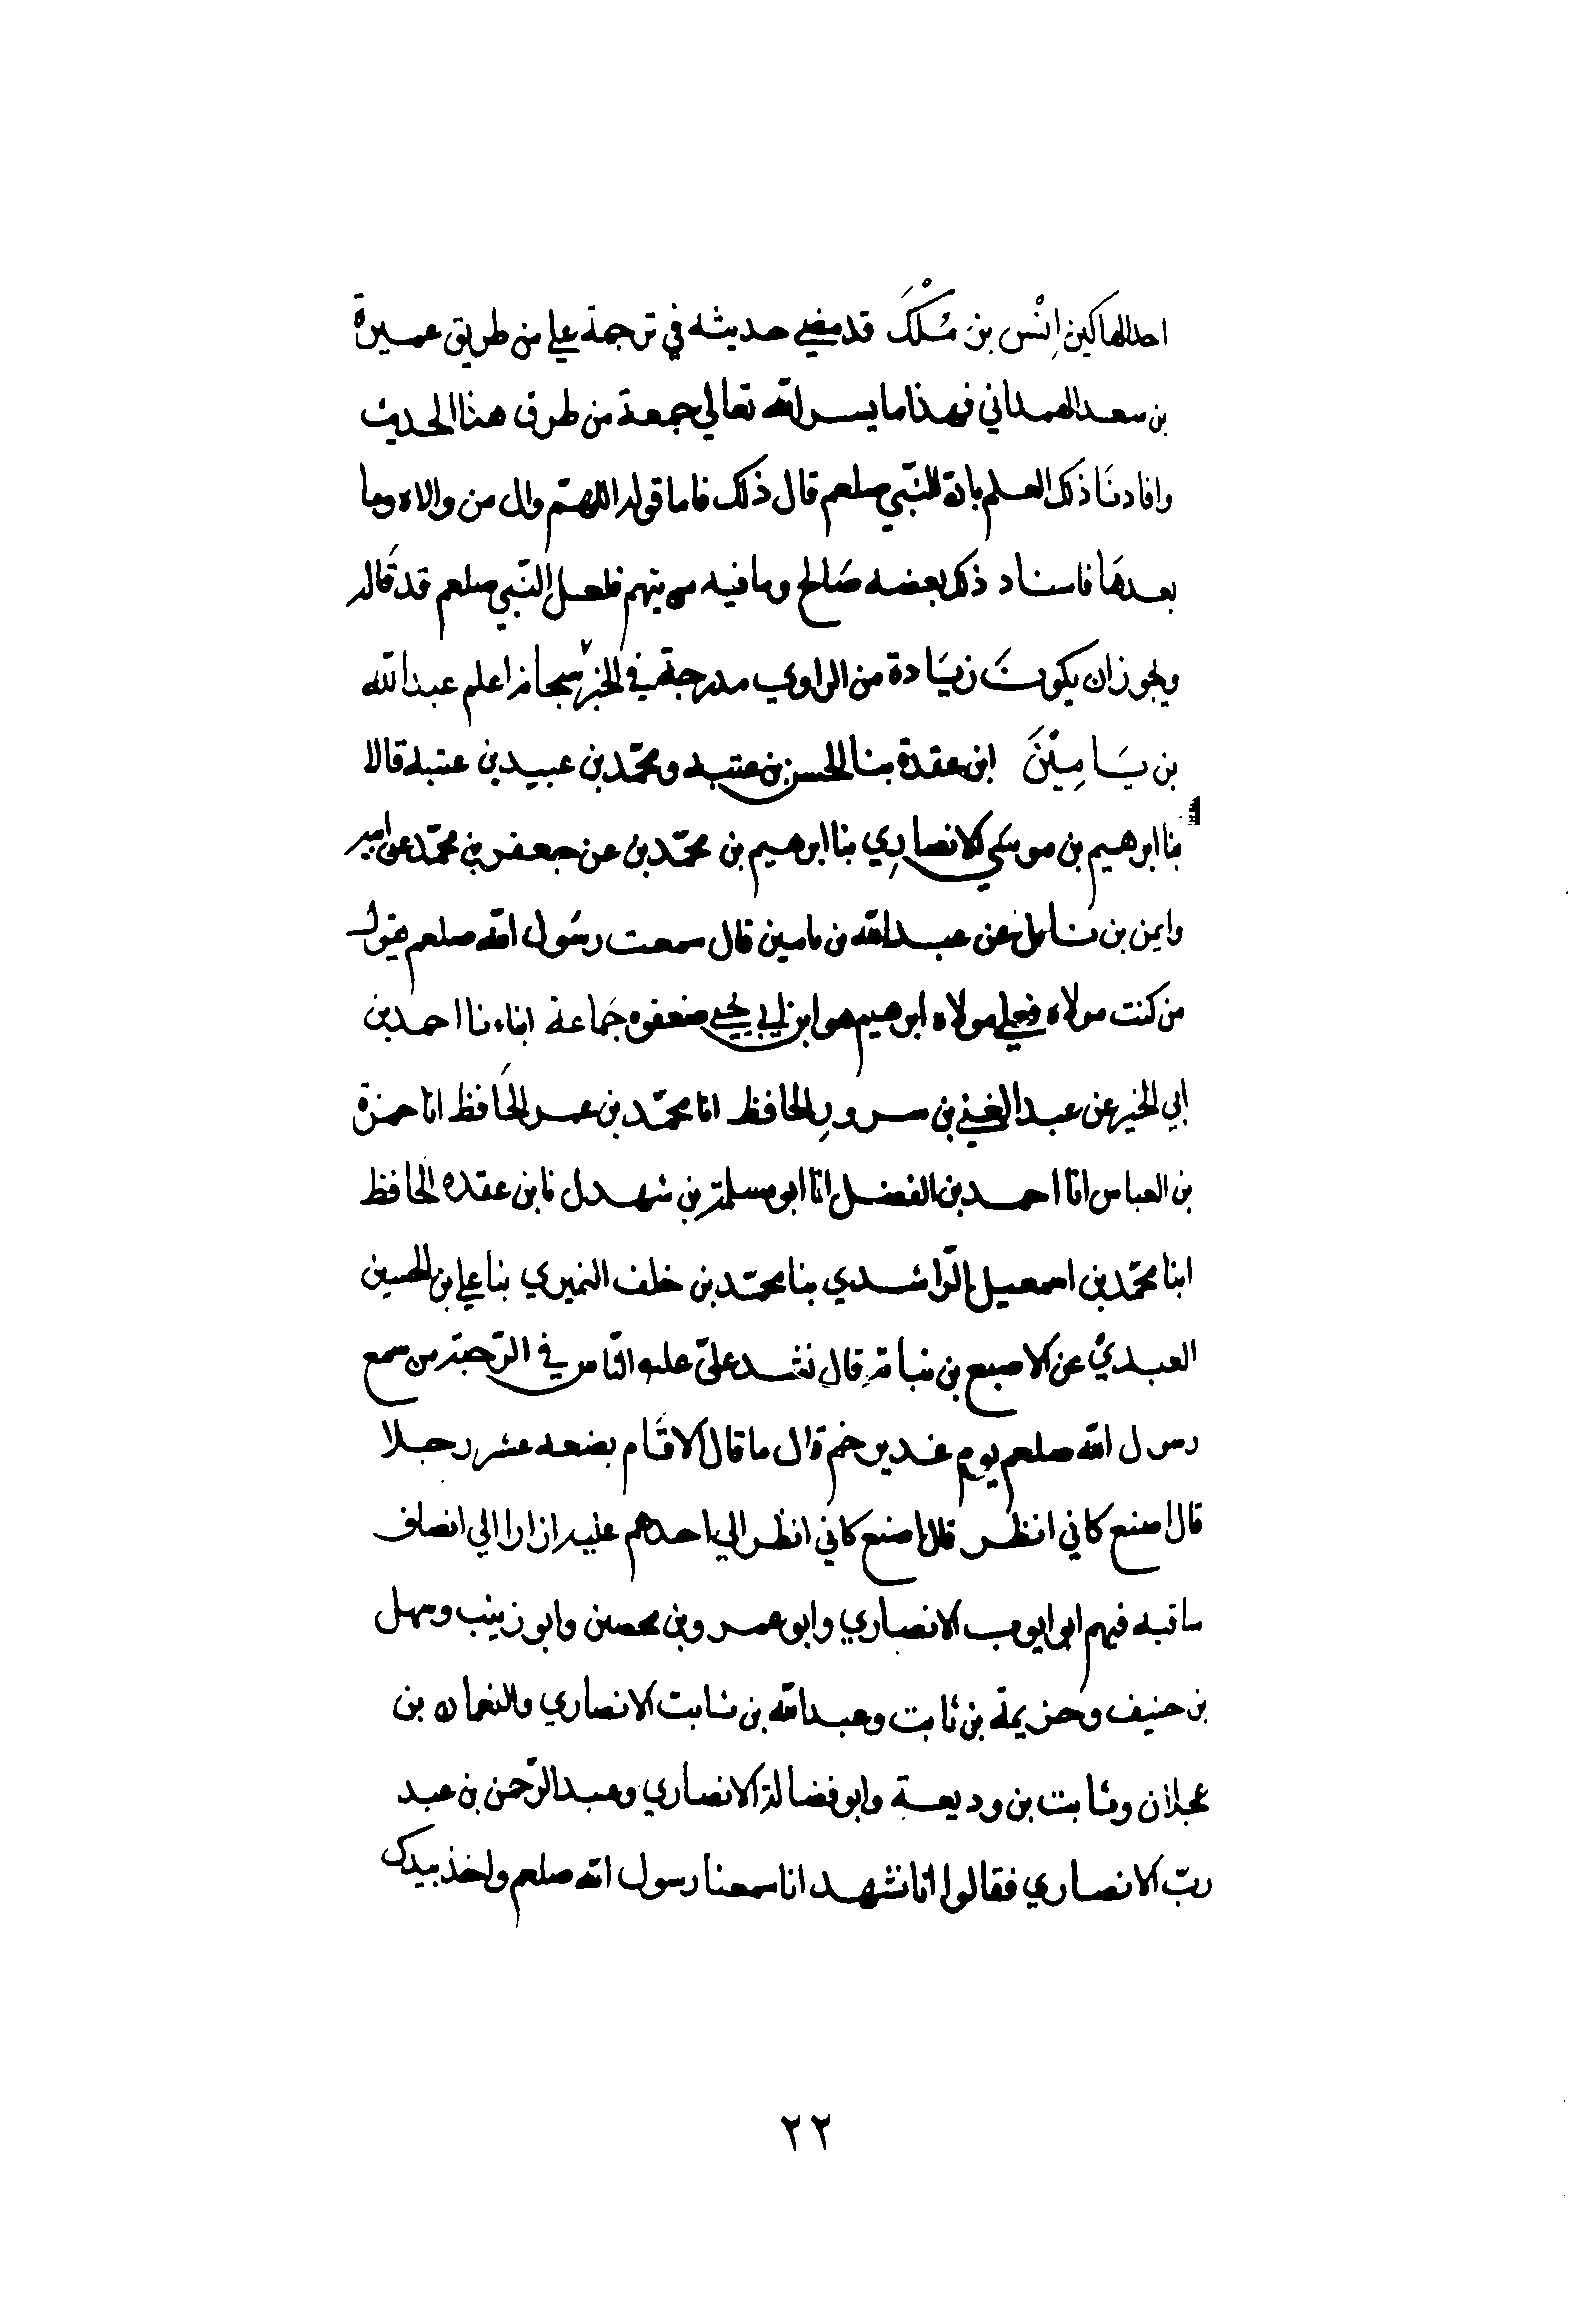 احد الهالكين انس بن ملك قد مضى حديثه في ترجمة علي من طريق عميرة
بن سعد الهمداني فهذا ما يسر الله تعالي جمعة من طرق هذا الحديث
وافادنا ذلك العلم بانة للنبي صلعم قال ذلك فاما قوله اللهم وال من والاه وما
بعدها فاسناد ذلك بعضه صالح وما فيه من يتهم فلعل النبي صلعم قد قاله
ويجوز ان يكون زيادة من الراوي مدرجة في الخبر اعلم عبد الله
بن يامين ابن عقدة بنا الحسن بن عتبه ومحمد بن عبيد بن عتبة قالا
بنا ابرهيم بن موسي الانصاري بنا ابرهيم بن محمد بن عن جعفر بن محمد عن ابيه
وايمن بن نابل عن عبد الله بن يامين قال سمعت رسول الله صلعم يقول
من كنت مولاه فعلي مولاه ابرهيم هو ابن ابي يحيي ضعفوه جماعة انباءنا احمد بن
ابي الخير عن عبد الغني بن سرور الحافظ انا محمد بن عمر الحافظ انا حمزة
بن العباس انا احمد بن الفضل انا ابو مسلمة بن شهدل نا بن عقده الحافظ
ابنا محمد بن اسمعيل الراشدي بنا محمد بن خلف النميري بنا علي بن الحسين
العبدي عن الاصبغ بن نباتة قال نشد علي عليه الناس في الرحبة من سمع
رسول الله صلعم يوم غدير خم قال ما قال الا قام بضعه عشر رجلا
قال اصنع كاني انظر قال اصنع كاني انظر الي احدهم عليه ازارا الي انصاف
ساقيه فيهم ابو ايوب الانصاري وابو عمرو بن محصن وابو زينب وسهل
بن حنيف وخزيمة بن ثابت وعبد الله بن ثابت الانصاري والنعمان بن
عجلان وثابت بن وديعة وابو فضالة الانصاري وعبد الرحمن بن عبد
رب الانصاري فقالوا انا نشهد انا سمعنا رسول الله صلعم واخذ بيدك
٢٢